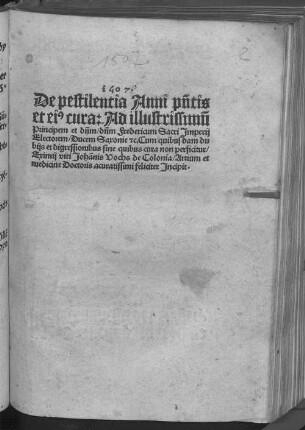 1507
2
1407
De pestilentia Anni pñtis
et eiꝰ cura: Ad illustrissimū
Principem et dñm/dñm Fredericum Sacri Imperij
Electorem/Ducem Saxonie ꝛc. Cum quibusdam du
bijs et digressionibus sine quibus cura non perficitur/
Eximij viri Johãnis Vochs de Colonia/Artium et
medicine Doctoris acuratissimi feliciter Incipit.